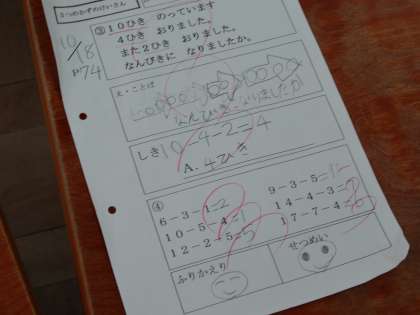 3つのかずのけいさん
10/18
P74
③10ひき のっています
4ひき おりました。
また2ひき おりました。
なんびきに なりましたか。
え・ことば
なんびきになりましたか
しき 10-4-2=4
A. 4ひき
④
6-3-1=2
9-3-5=1
10-5-4=1
14-4-3=
12-2-5=5
17-7-4=
ふりかえり
せつめい